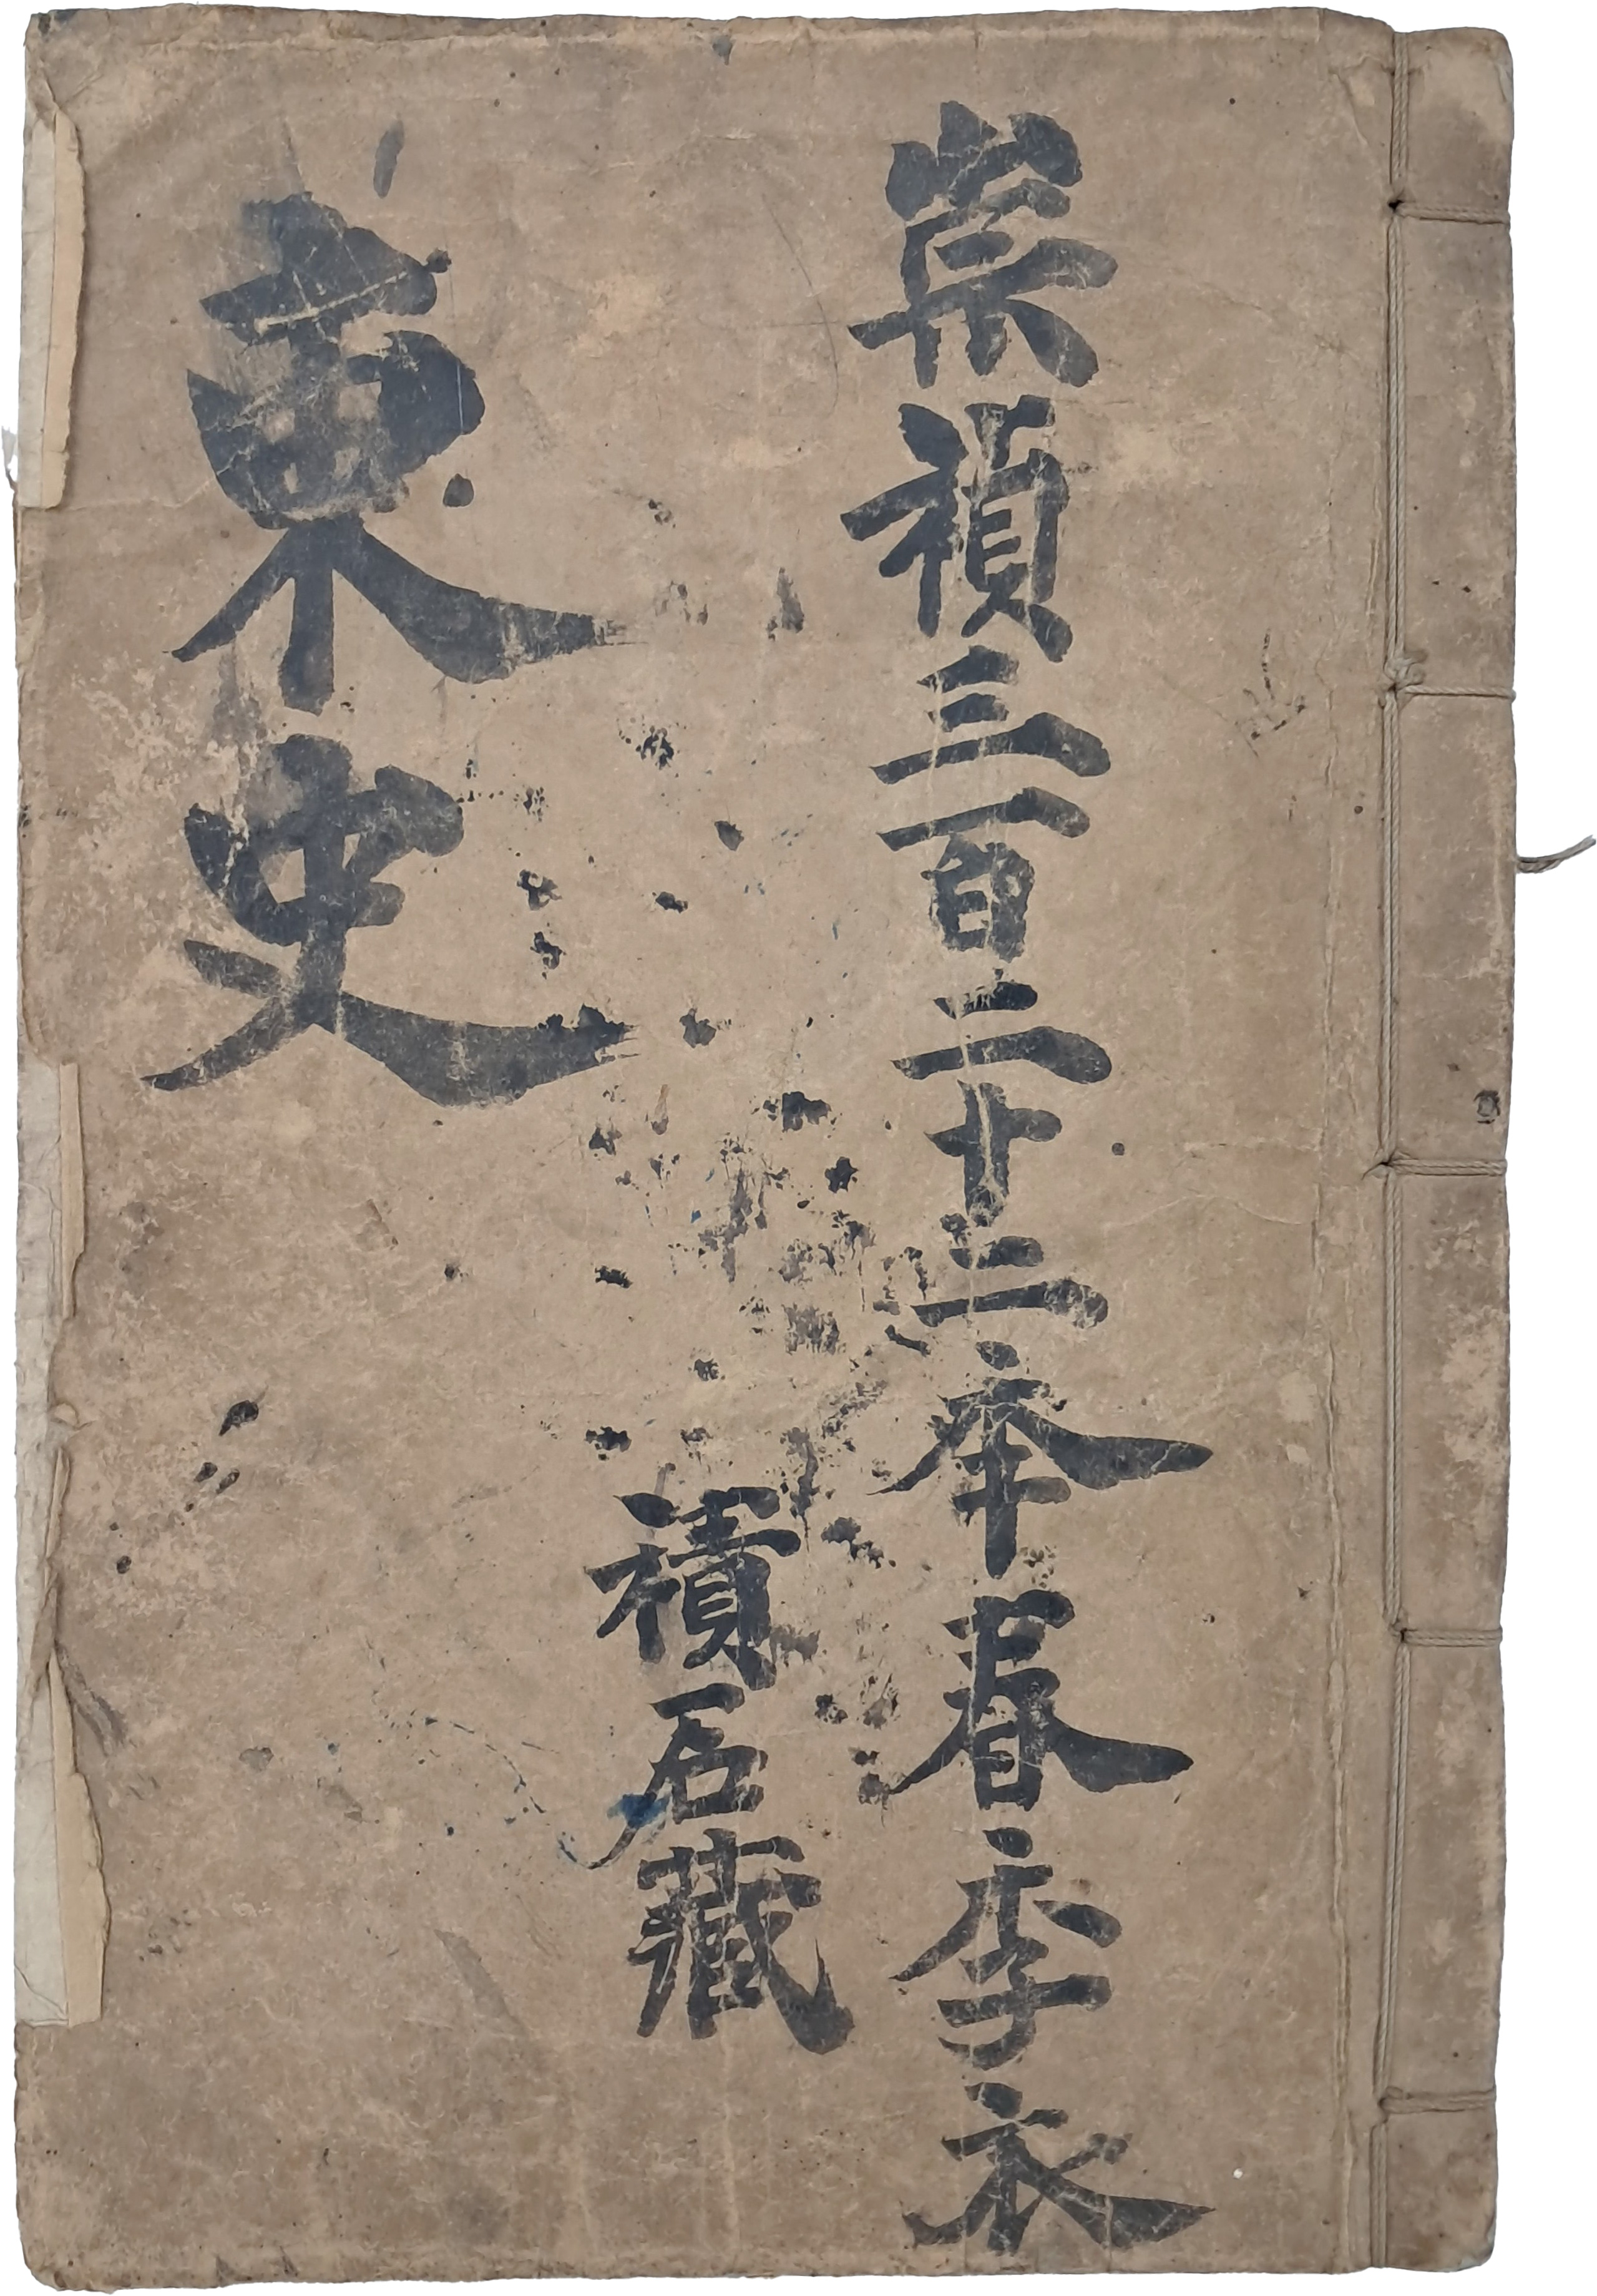 崇禎三百二十三年春季衣
積石藏
東史